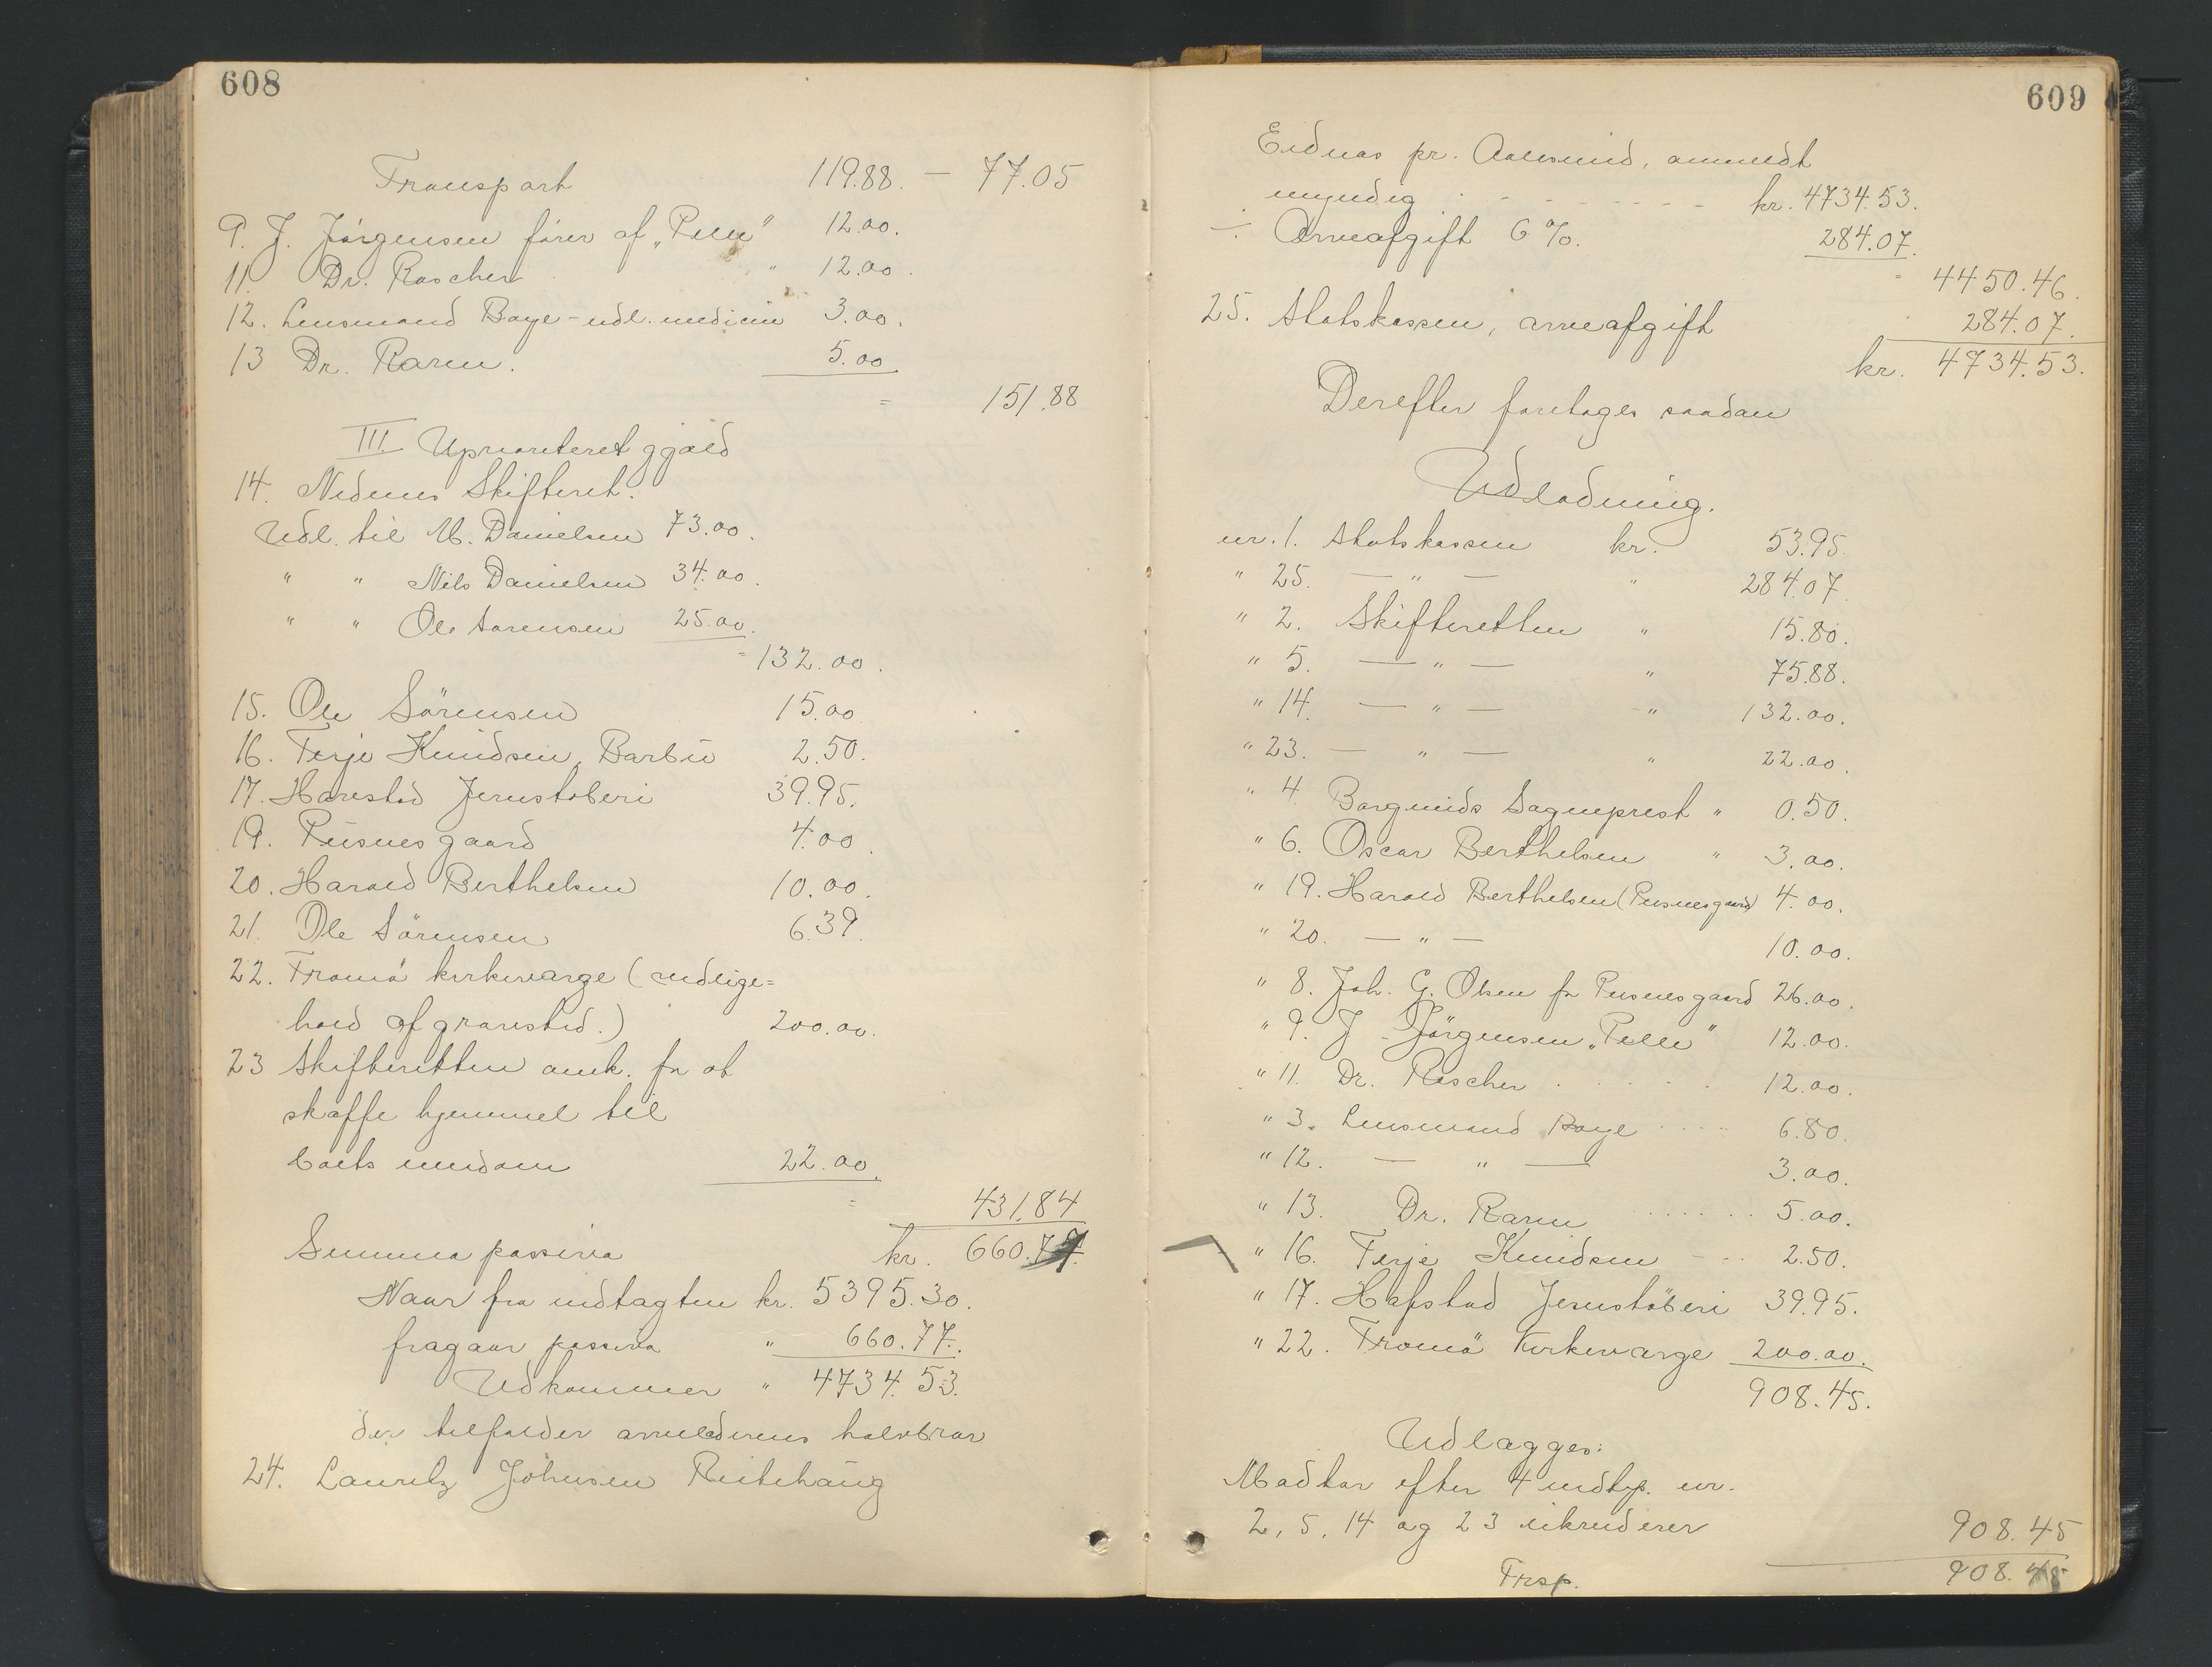 608
Transport 119.88. — 77.05
9. J. Jörgensen förer af „Pelle" 12.00.
11 Dr. Roscher " 12.00.
12. Lensmand Boye - udl. medicin 3.00.
13 Dr. Rarm. 5.00
= 151.88
III Uprioriteret gjæld
14. Nedenes Skifteret.
Udl. til M. Danielsen 73.00.
" " Nils Danielsen 34.00.
" " Ole Sørensen 25.00.
= 132.00.
15. Ole Sörensen 15.00
16. Terje Knudsen, Barbu 2.50.
17. Harestad Jernstøberi 39.95.
19. Pusnesgaard 4.00.
20. Harald Berthelsen 10.00.
21. Ole Sörensen 6.39.
22. Tromö kirkeværge (vedlige=
hold af gravsted.) 200.00.
23 Skifteretten omk. for at
skaffe hjemmel til
boets eiendom 22.00.
= 431.84
Summa passiva kr. 660.77
Naar fra indtægten kr. 5395.30.
fragaar passiva " 660.77.
Udkommer " 4734.53.
der tilfalder arveladerens halvbror
24. Lauritz Johnsen
609
Eidnas pr. Aalesund, anmeldt
myndig - - - - - - kr. 4734.53.
÷ Arveafgift 6 %. 284.07.
= 4450.46.
25. Statskassen, arveafgift 284.07.
kr. 4734.53.
Derefter foretages saadan
Udlodning.
nr. 1. Statskassen kr. 53.95
" 25. — " — " 284.07.
" 2. Skifteretten " 15.80.
" 5. — " — " 75.88.
" 14. — " — " 132.00.
" 23. — " — " 22.00.
" 4. Borgunds Sogneprest " 0.50.
" 6. Oscar Berthelsen " 3.00.
" 19. Harald Berthelsen (Pusnesgaard) 4.00.
" 20. — " — 10.00.
" 8. Joh. G. Olsen for Pusnesgaard 26.00.
" 9. J. Jörgensen „Pelle" 12.00.
" 11. Dr. Roscher . . . . . 12.00.
" 3. Lensmand Boye . . . . 6.80.
" 12. — " — 3.00.
" 13. Dr. Rarm . . . . . . 5.00.
" 16. Terje Knudsen - - - 2.50.
" 17. Hafstad Jernstöberi 39.95.
" 22. Tromö Kirkeværge 200.00.
908.45.
Udlægges:
Modtar efter 4 indtgs. nr.
2, 5, 14 og 23 908.45
Trsp. 908.45